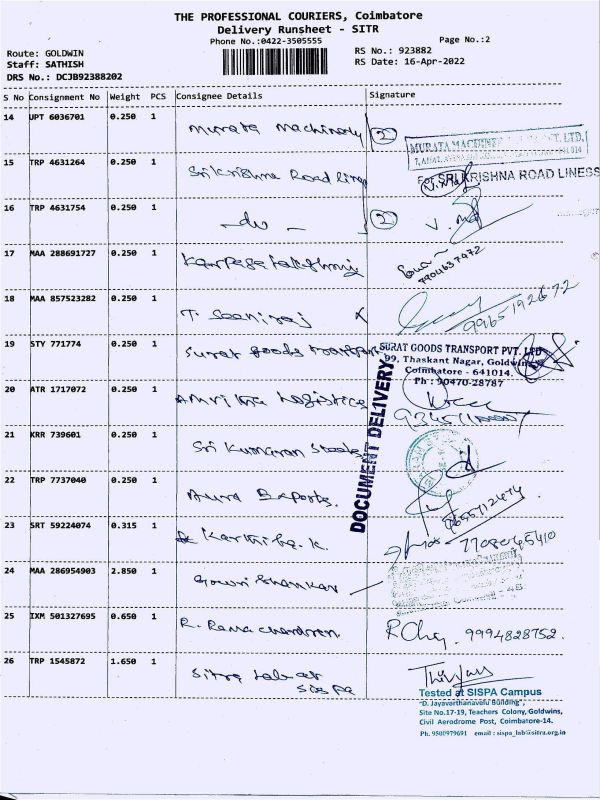 THE PROFESSIONAL COURIERS, Coimbatore
Delivery Runsheet - SITR
Phone No.:0422-3505555
Page No.:2
Route: GOLDWIN
RS No.: 923882
Staff: SATHISH
RS Date: 16-Apr-2022
DRS No.: DCJB92388202
S No Consignment No Weight PCS Consignee Details Signature
14 UPT 6036701 0.250 1 Murata Machinery 2
MURATA MACHINERY
15 TRP 4631264 0.250 1 Sri Krishna Road lines
For SRI KRISHNA ROAD LINESS
16 TRP 4631754 0.250 1 - do - 2
manager
17 MAA 288691727 0.250 1 Karpaga lakshmi
7904637972
18 MAA 857523282 0.250 1 T.
9965192672
19 STY 771774 0.250 1 Surat goods transport
SURAT GOODS TRANSPORT PVT. LTD
99, Thaskant Nagar, Goldwins
Coimbatore - 641014.
Ph : 90470-28787
20 ATR 1717072 0.250 1 Amritha Logistics
DOCUMENT DELIVERY
21 KRR 739601 0.250 1 Sri Kumaran Steels
22 TRP 7737040 0.250 1 Aura Exports.
23 SRT 59224074 0.315 1 Karthika. K.
7708045410
24 MAA 286954903 2.850 1 Gowri Shankar
25 IXM 501327695 0.650 1 R. Ramachandran
9994828752.
26 TRP 1545872 1.650 1 Sitra Lab at
Sispa
Tested at SISPA Campus
"D. Jayavarthanavelu Building",
Site No.17-19, Teachers Colony, Goldwins,
Civil Aerodrome Post, Coimbatore-14.
Ph. 9500979691 email : sispa_lab@sitra.org.in